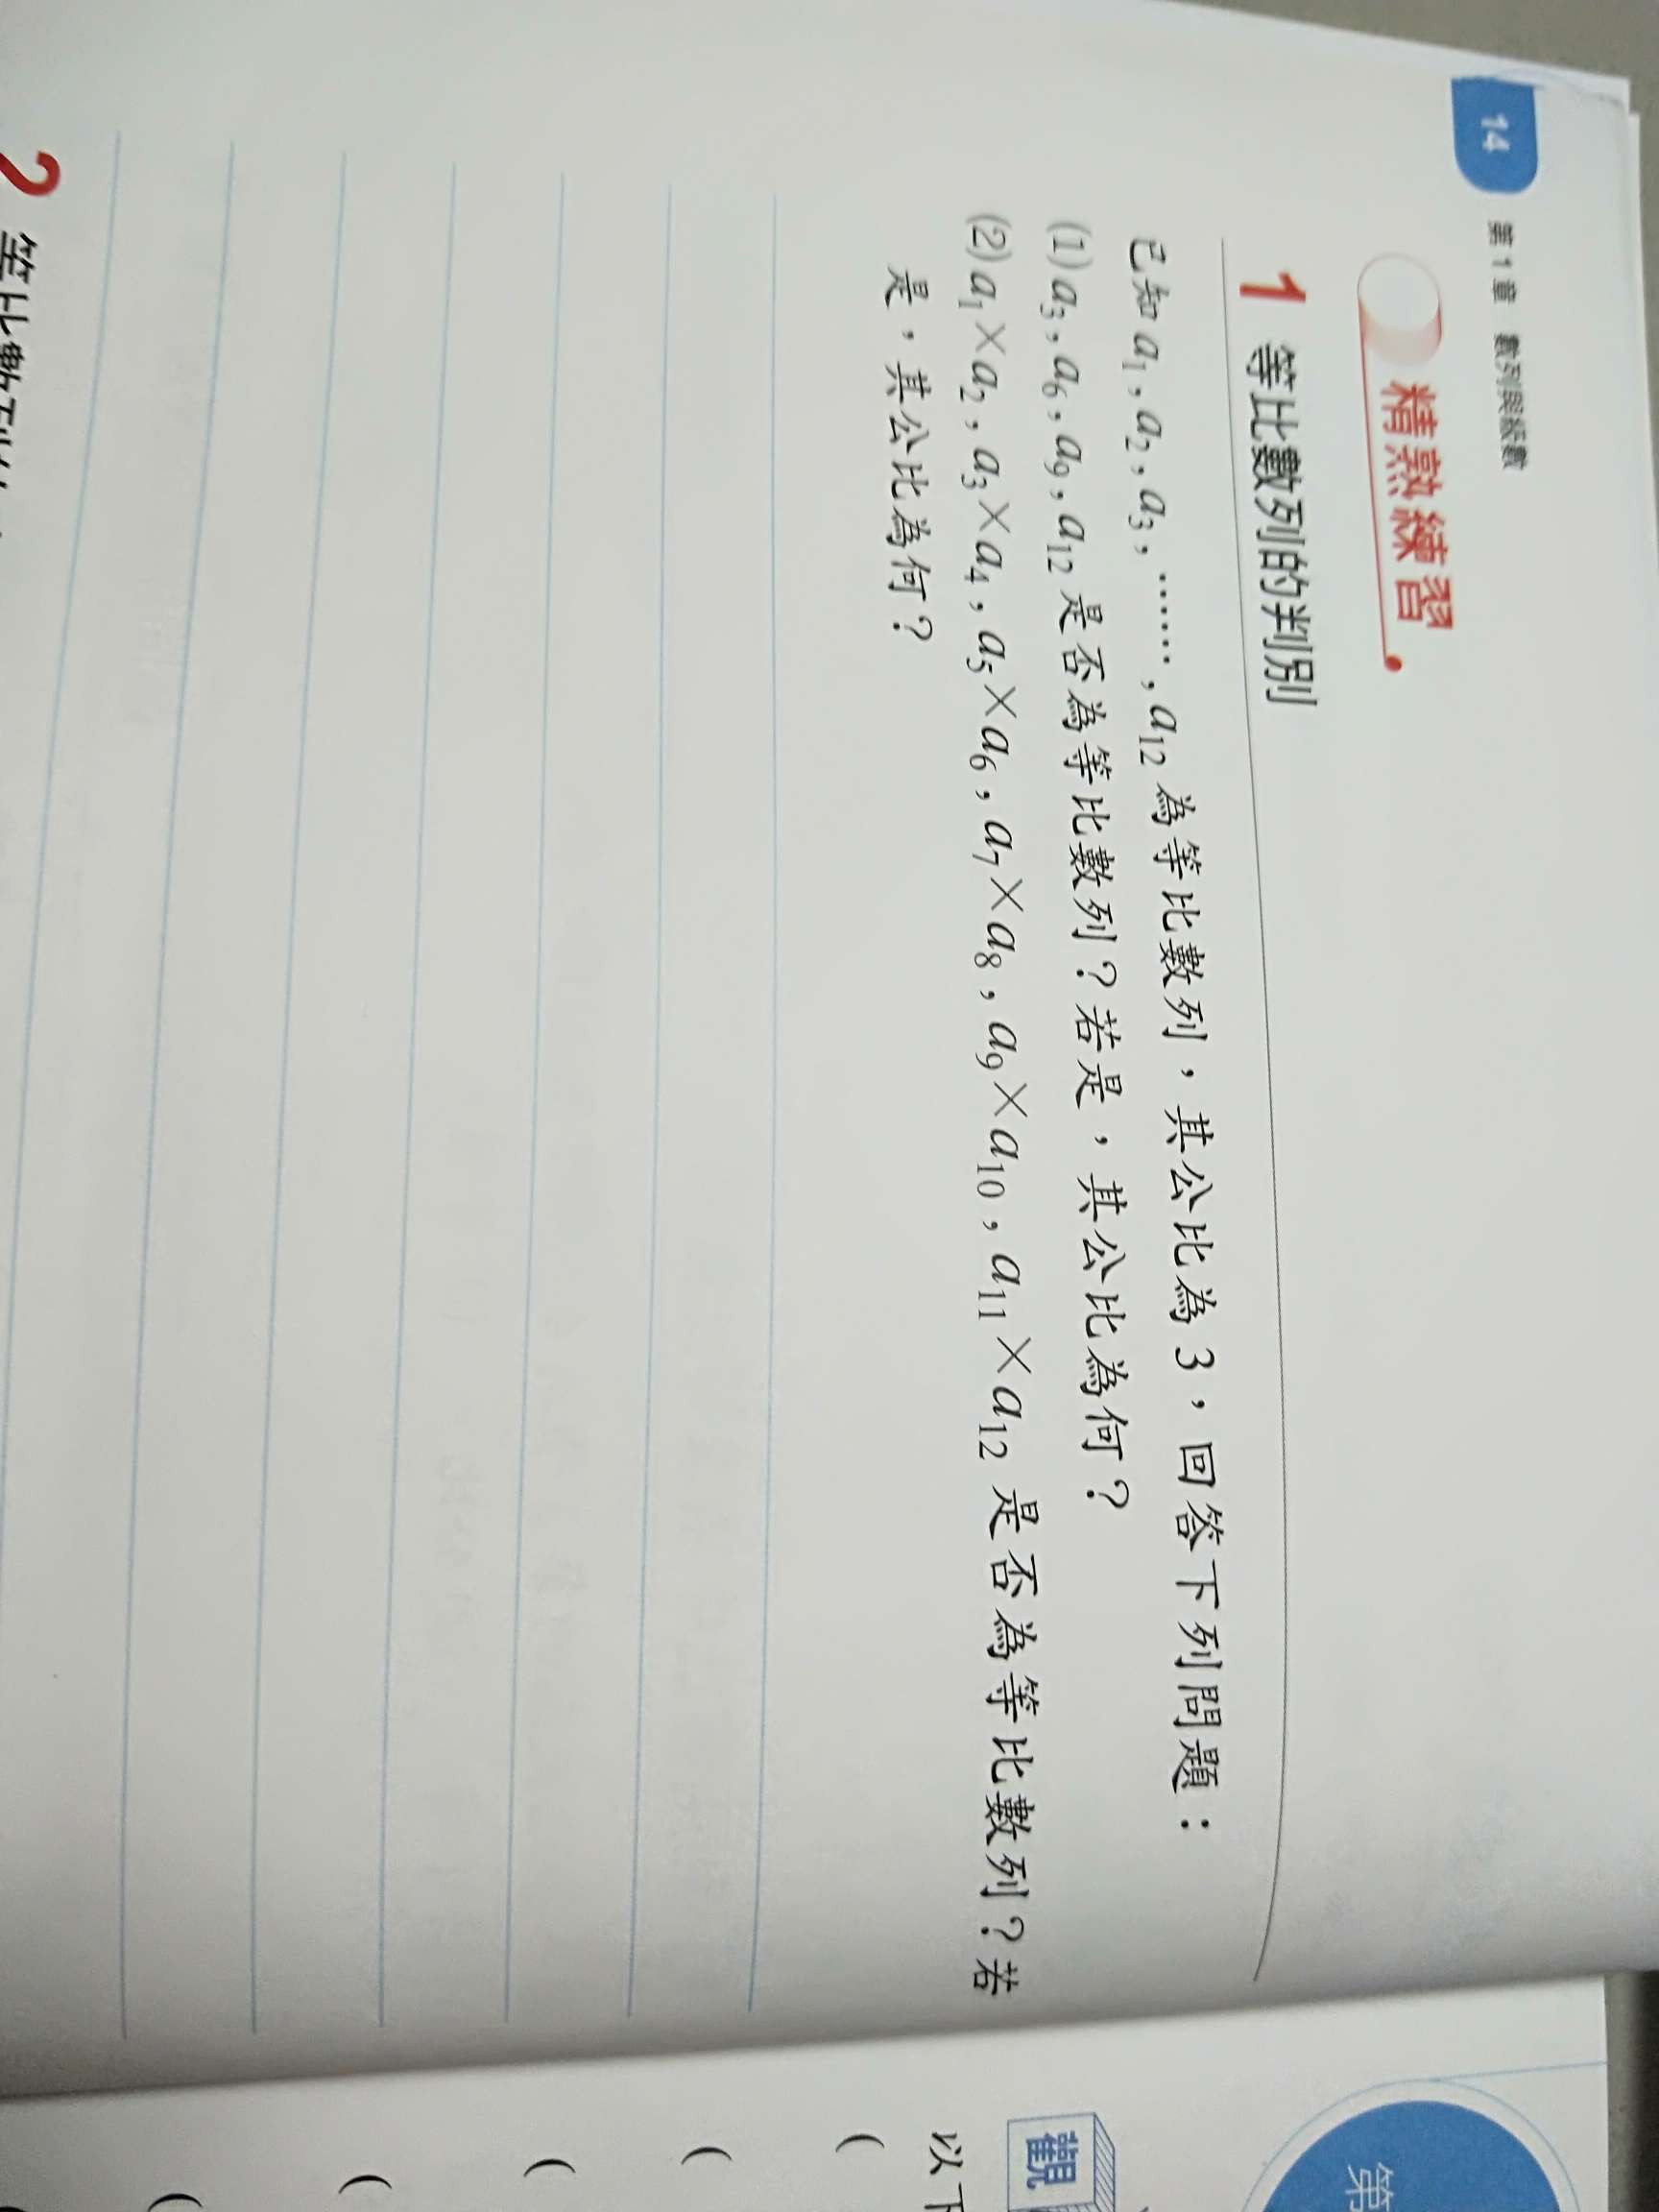 14
第1章 數列與級數
精熟練習
1 等比數列的判別
已知 a₁, a₂, a₃, ……, a₁₂ 為等比數列，其公比為 3，回答下列問題：
(1) a₃, a₆, a₉, a₁₂ 是否為等比數列？若是，其公比為何？
(2) a₁×a₂, a₃×a₄, a₅×a₆, a₇×a₈, a₉×a₁₀, a₁₁×a₁₂ 是否為等比數列？若
是，其公比為何？
2 等比數列
第
觀
以下
(
(
(
(
(